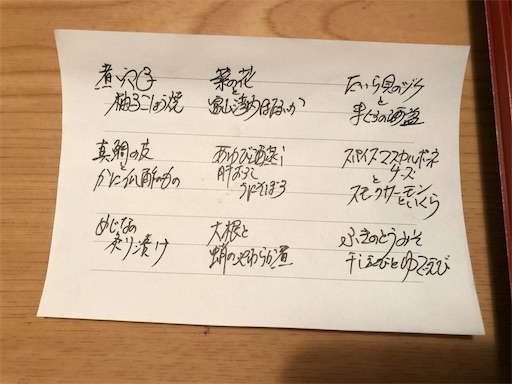 煮穴子
柚子こしょう焼
菜の花
と
富山湾内ほたるいか
たいら貝のヅケ
と
まぐろの酒盗
真鯛の皮
と
かに 酢のもの
あわび酒蒸し
肝おろし
うにそぼろ
スパイスマスカルポーネ
チーズ
と
スモークサーモン
といくら
めじなの
炙り漬け
大根と
蛸のやわらか煮
ふきのとうみそ
干しえびとゆでえび